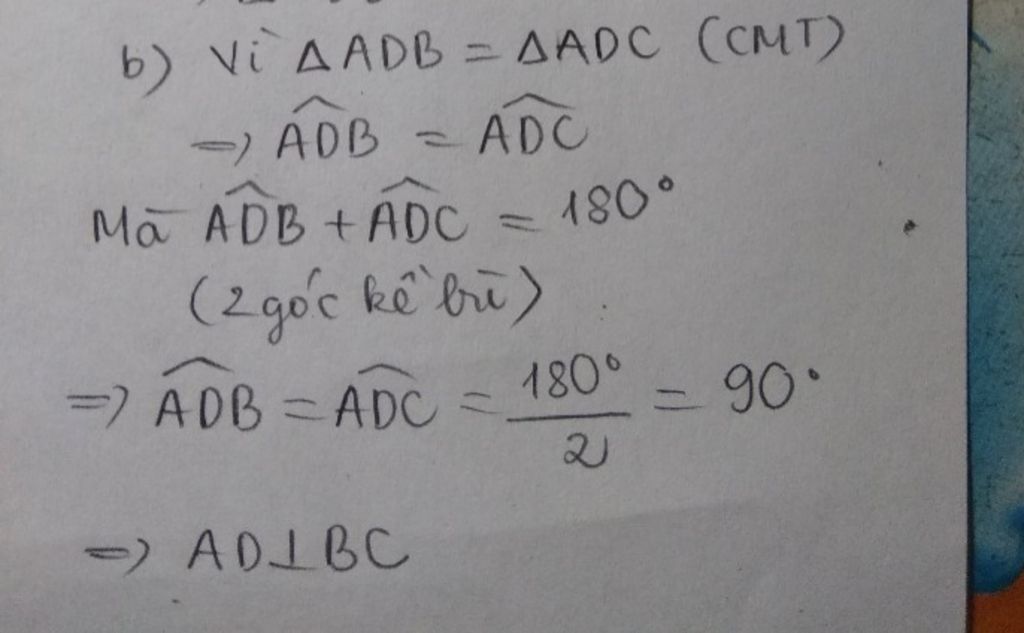 b) Vì ΔADB = ΔADC (CMT)
=> \widehat{ADB} = \widehat{ADC}
Mà \widehat{ADB} + \widehat{ADC} = 180°
(2 góc kề bù)
=> \widehat{ADB} = \widehat{ADC} = \frac{180°}{2} = 90°
=> AD⊥BC